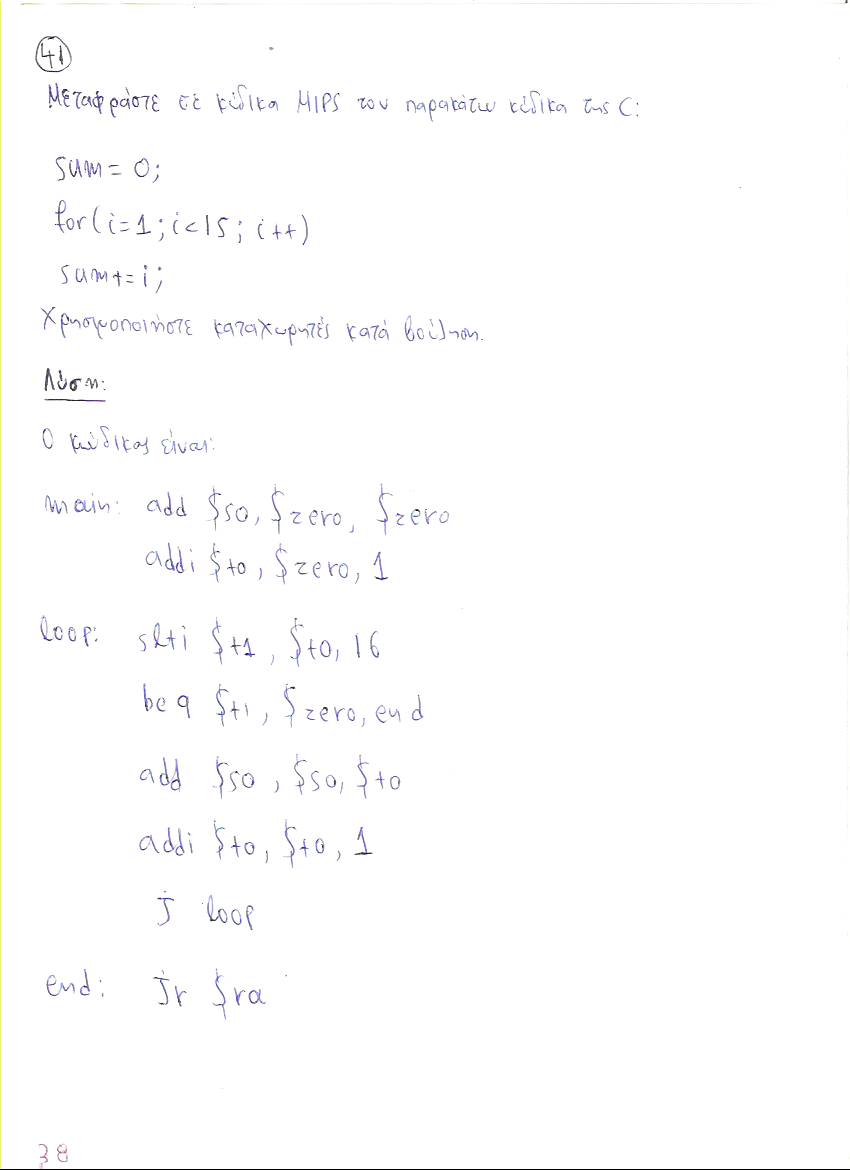 41
Μεταφράστε σε κώδικα MIPS τον παρακάτω κώδικα της C:
sum = 0;
for(i=1;i<15; i++)
sum+=i;
Χρησιμοποιήστε καταχωρητές κατά βούληση.
Λύση:
Ο κώδικας είναι:
main: add $s0, $zero, $zero
addi $t0, $zero, 1
loop: slti $t1, $t0, 16
beq $t1, $zero, end
add $s0, $s0, $t0
addi $t0, $t0, 1
j loop
end: jr $ra
38